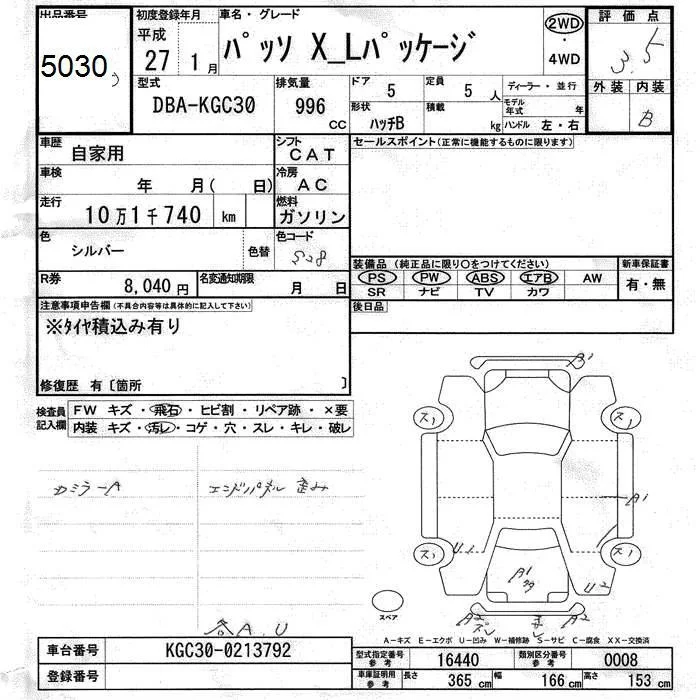 出品番号 初度登録年月 車名・グレード 2WD 評価点
5030 平成 27 1月 パッソ X_Lパッケージ ・ 4WD 3.5
型式 排気量 ドア 5 定員 5人 ディーラー・並行 外装 内装
DBA-KGC30 996 CC 形状 ハッチB 積載 kg モデル年式 年 ハンドル 左・右 B
車歴 自家用 シフト CAT セールスポイント(正常に機能するものに限ります)
車検 年 月( 日) 冷房 AC
走行 10万1千740 km 燃料 ガソリン
色 シルバー 色替 色コード S28
装備品 (純正品に限り〇をつけてください) 新車保証書
R券 8,040円 名変通知期限 月 日 PS PW ABS エアB AW 有・無
SR ナビ TV カワ
注意事項申告欄(不具合内容等は具体的に記入して下さい) 後日品
※タイヤ積込み有り
修復歴 有〔箇所 〕
検査員記入欄 FW キズ・飛石・ヒビ割・リペア跡・×要
内装 キズ・汚レ・コゲ・穴・スレ・キレ・破レ
A1
ス1 ス1
カミラーA エンドパネル歪み
A1
ス1 U1 ス1
A1 U2
スペア
A2 A2
各A.U
A-キズ E-エクボ U-凹み W-補修跡 S-サビ C-腐食 XX-交換済
車台番号 KGC30-0213792
登録番号
型式指定番号 参考 16440 類別区分番号 参考 0008
車庫証明用 参考 長さ 365cm 幅 166cm 高さ 153cm